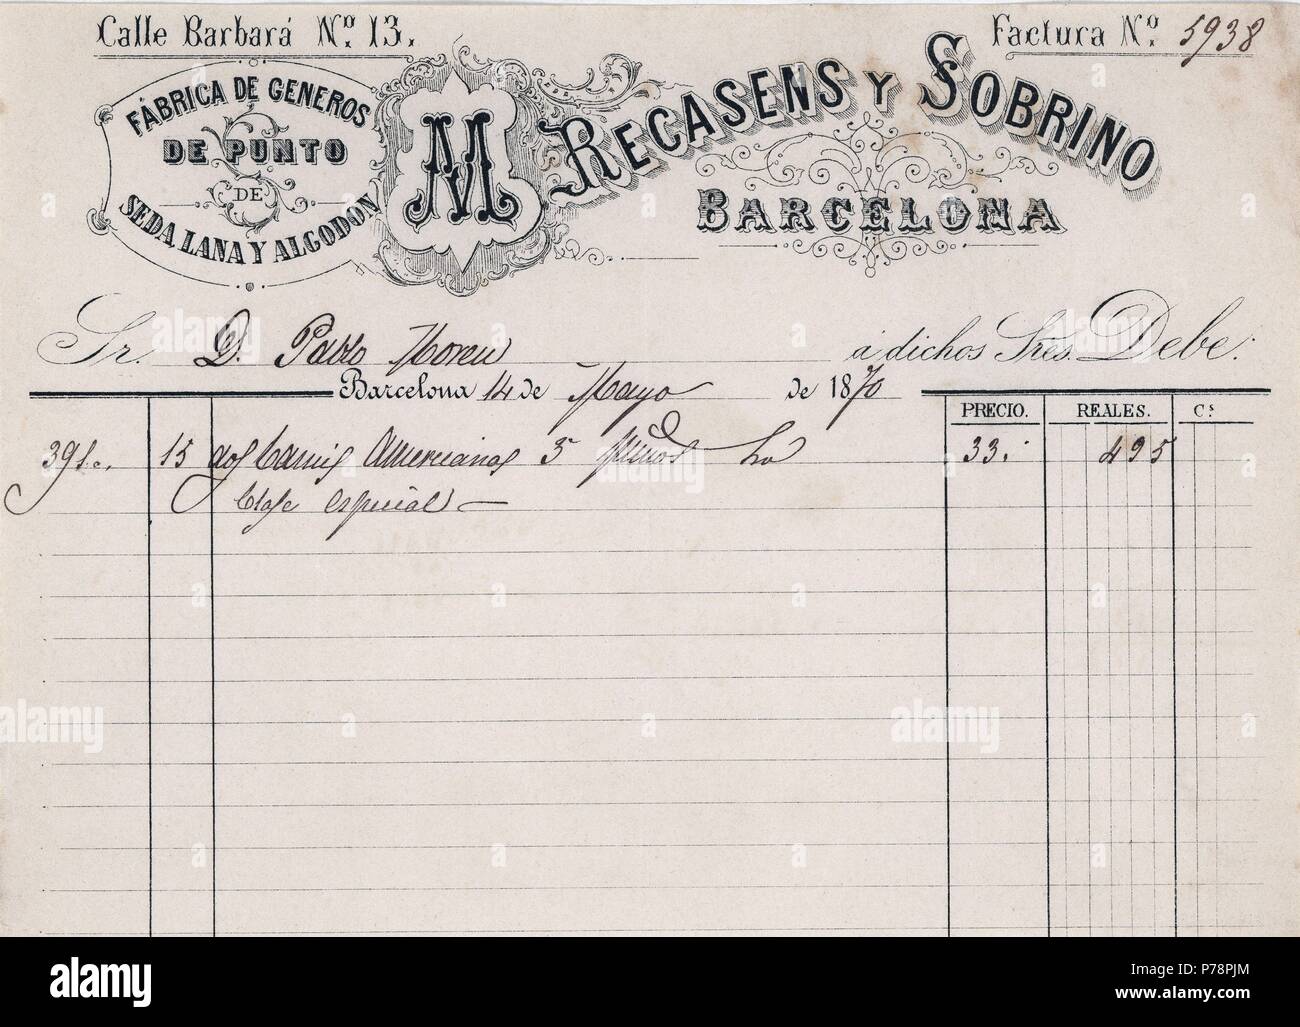 Calle Barbará Nº 13.
Factura Nº 5938
FÁBRICA DE GENEROS
DE PUNTO
DE
SEDA LANA Y ALGODON
M RECASENS Y SOBRINO
BARCELONA
Sr. D. Pablo á dichos Sres. Debe:
Barcelona 14 de Mayo de 1870
PRECIO. REALES. Cs
15 Americanas 33. 495
Clase especial
alamy
alamy
alamy
a
a
a
a
alamy
Image ID: P78PJM
www.alamy.com